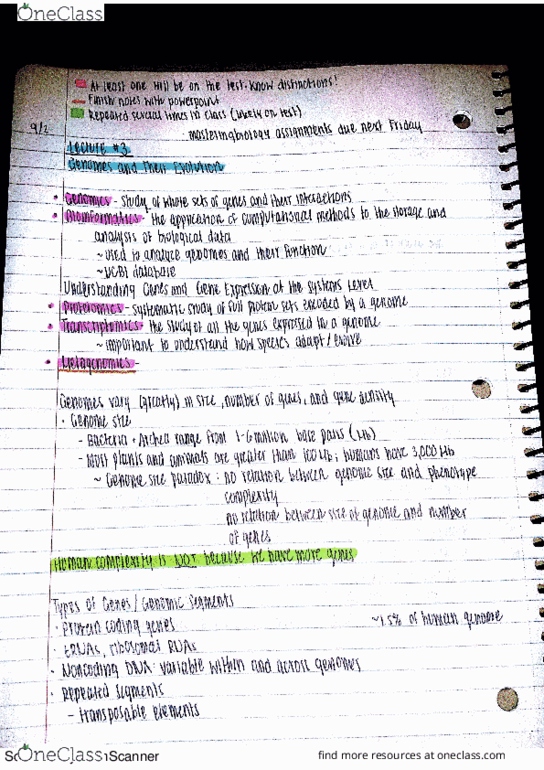 OneClass
At least one will be on the test. Know distinctions!
Finish notes with powerpoint
Repeated several times in class (likely on test)
9/2
masteringbiology assignments due next Friday
Lecture #3
Genomes and Their Evolution
• Genomics - study of whole sets of genes and their interactions
• Bioinformatics - the application of computational methods to the storage and
analysis of biological data
~ used to analyze genomes and their function
~ NCBI database
Understanding Genes and Gene Expression at the Systems Level
• Proteomics - systematic study of full protein sets encoded by a genome
• Transcriptomics - the study of all the genes expressed to a genome
~ important to understand how species adapt / evolve
• Metagenomics -
Genomes vary (greatly) in size, number of genes, and gene density
• Genome size
- Bacteria + Archea range from 1-6 million base pairs (Mb)
- Most plants and animals are greater than 100 Mb; humans have 3,000 Mb
~ Genome size paradox: no relation between genome size and phenotype
complexity
no relation between size of genome and number
of genes
Human complexity is NOT because we have more genes
Types of Genes / Genomic Segments
• protein coding genes ~1.5% of human genome
• tRNAs, ribosomal RNAs
• Noncoding DNA: variable within and across genomes
• Repeated segments
- transposable elements
OneClass
Scanner
find more resources at oneclass.com